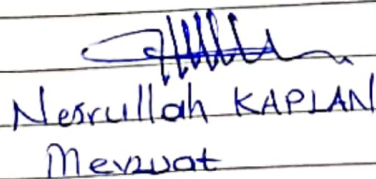 Nesrullah KAPLAN
Mevzuat